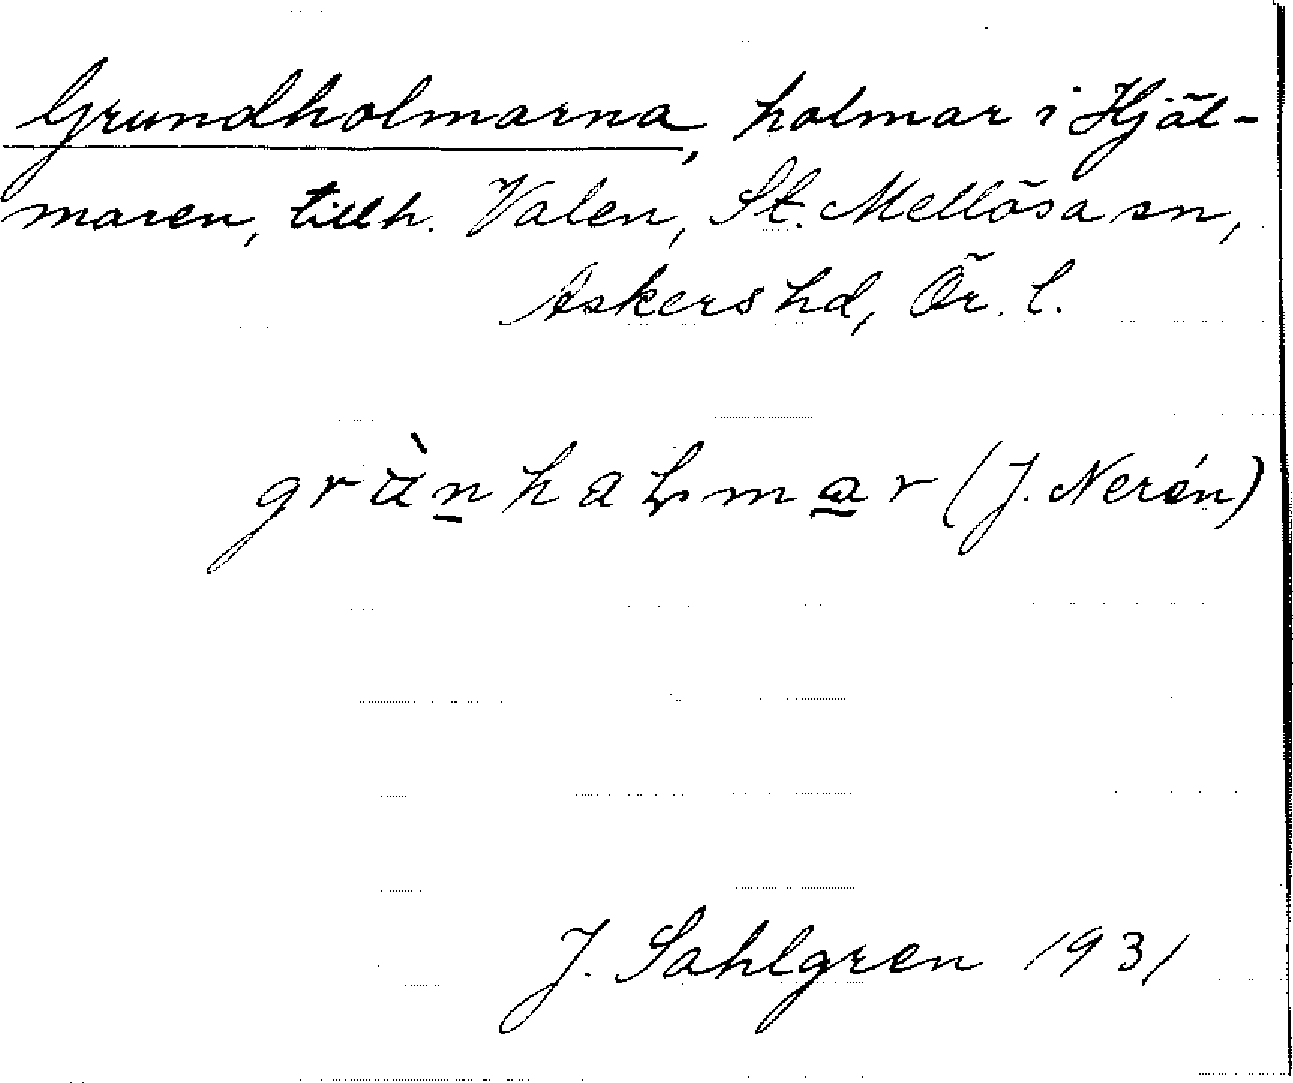 Grundholmarna, holmar i Hjäl-
maren, tillh. Valen, St. Mellösa sn,
Askers hd, Ör. l.
(J. Nerén)
J. Sahlgren 1931